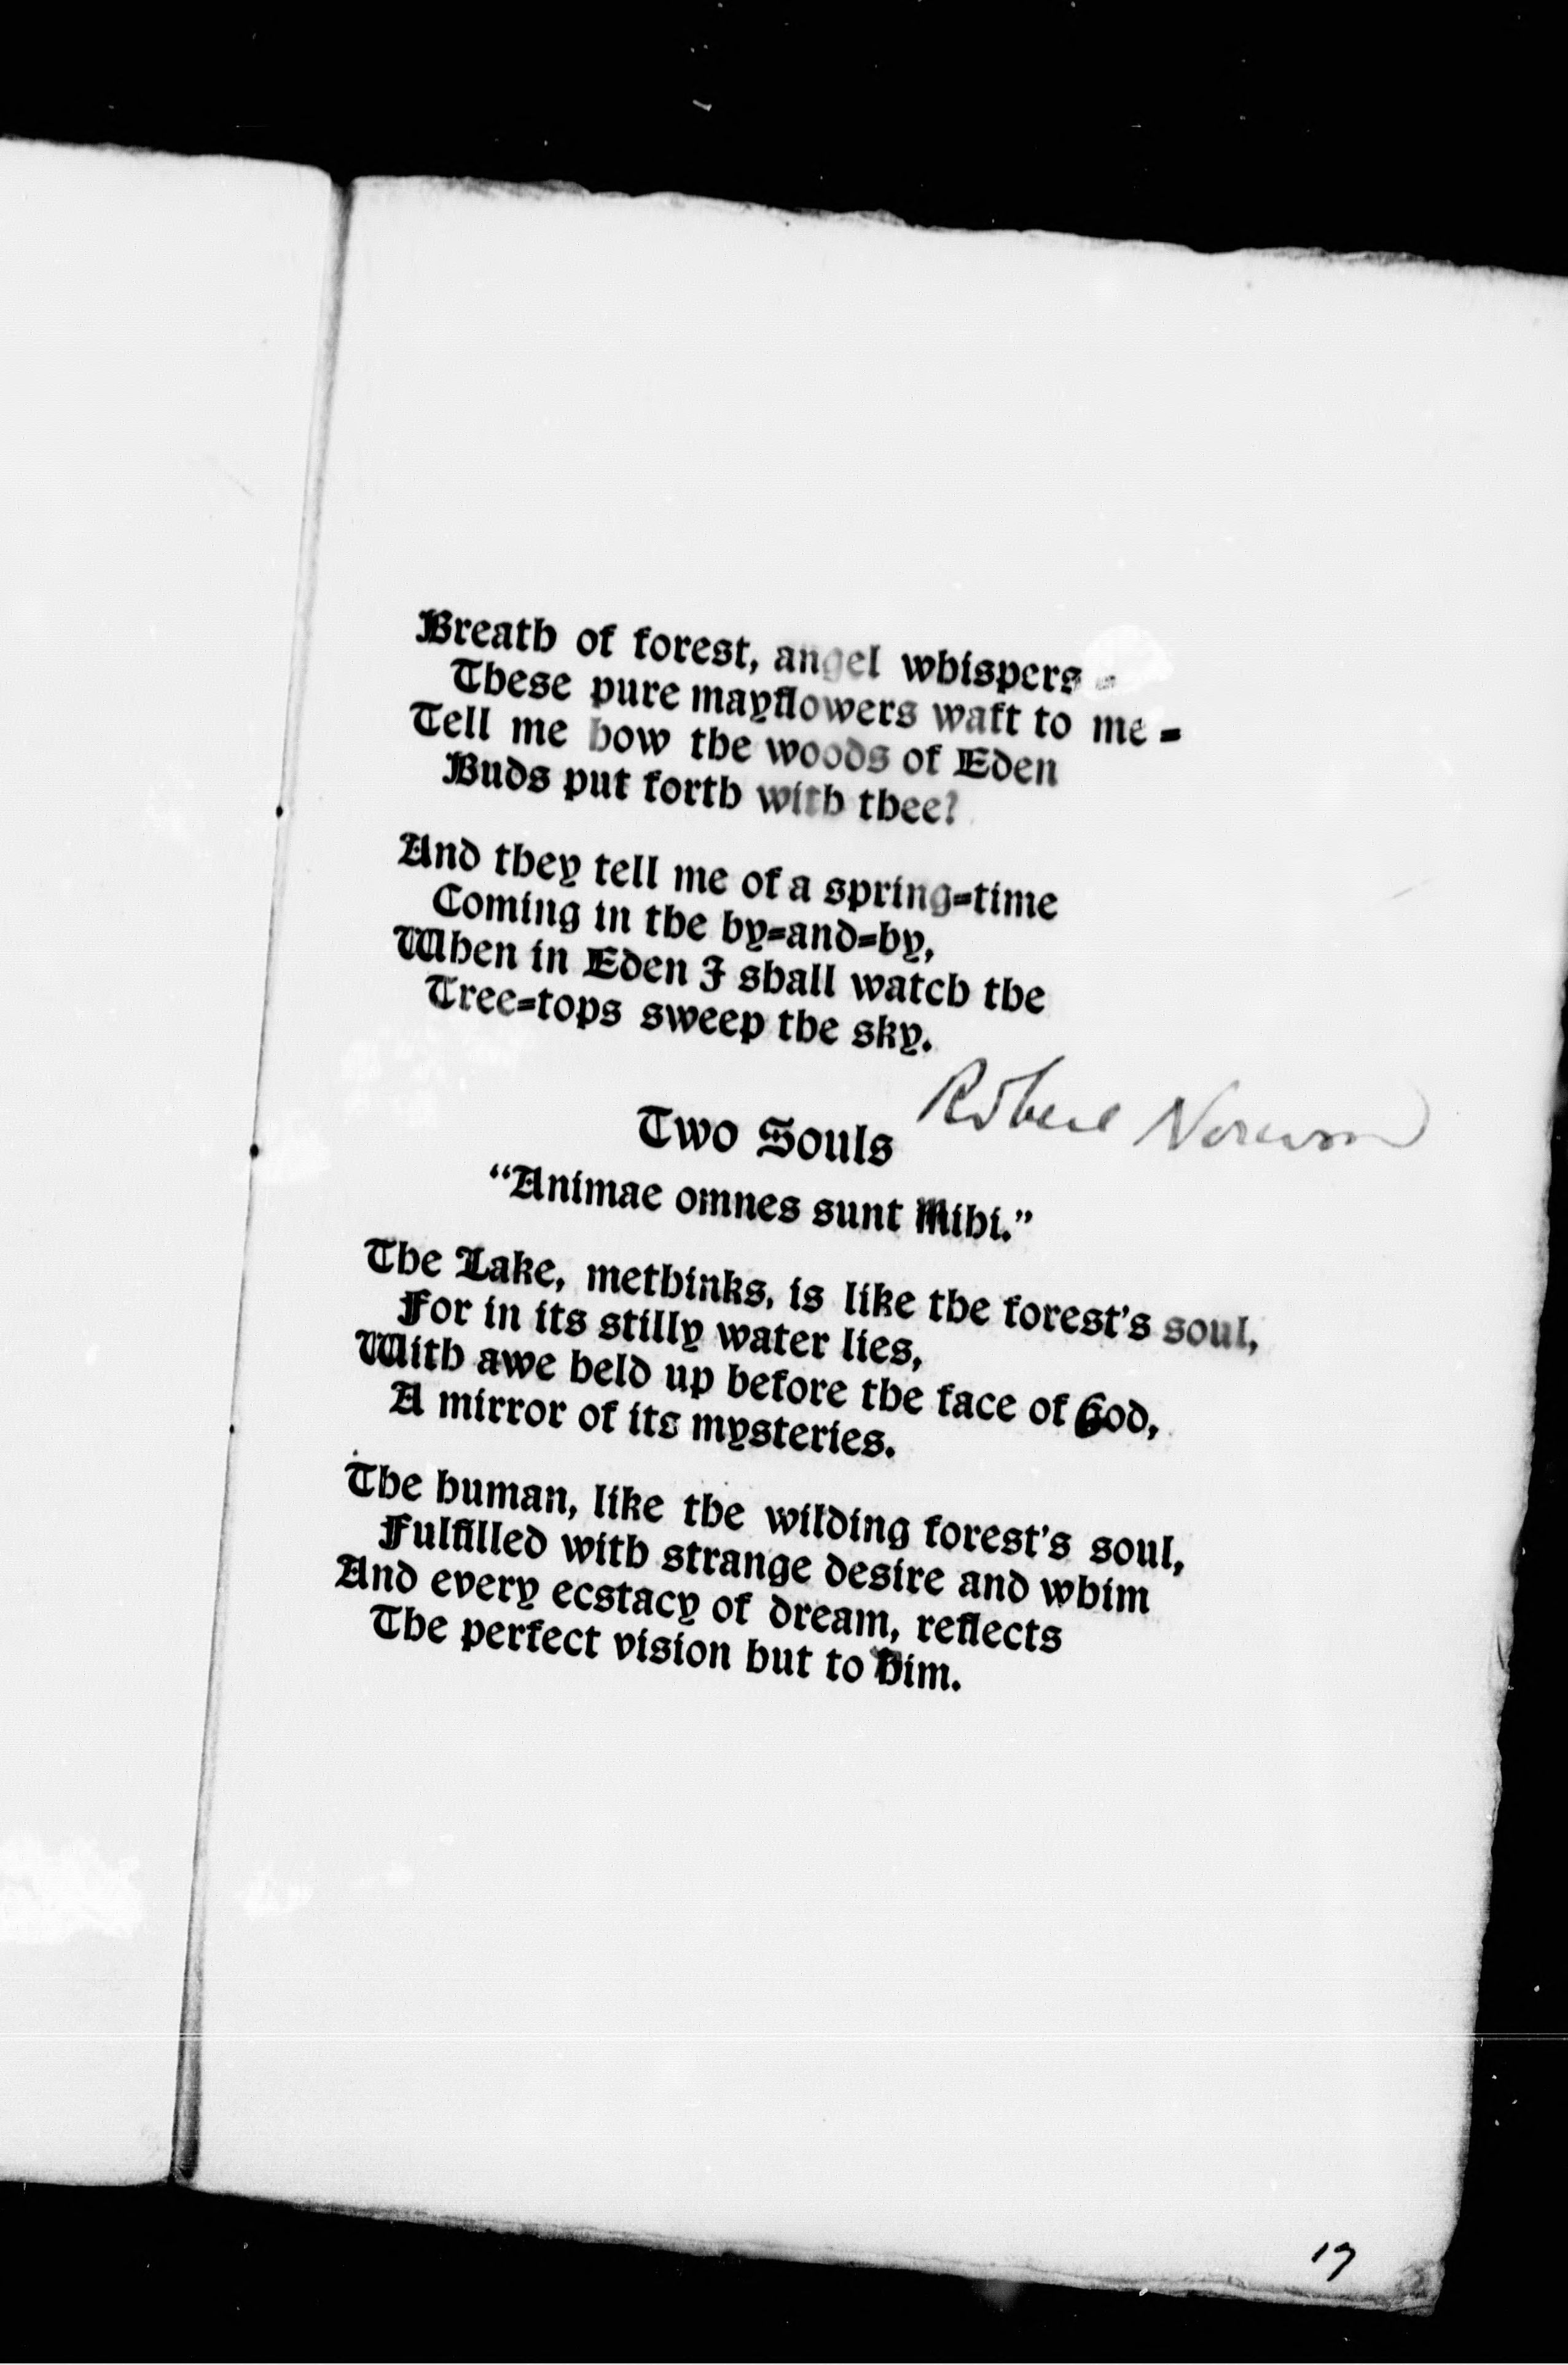 Breath of forest, angel whispers -
These pure mayflowers waft to me -
Tell me how the woods of Eden
Buds put forth with thee?
And they tell me of a spring-time
Coming in the by-and-by,
When in Eden I shall watch the
Tree-tops sweep the sky.
Robert Norwood
Two Souls
"Animae omnes sunt Mihi."
The Lake, methinks, is like the forest's soul,
For in its stilly water lies,
With awe held up before the face of God,
A mirror of its mysteries.
The human, like the wilding forest's soul,
Fulfilled with strange desire and whim
And every ecstacy of dream, reflects
The perfect vision but to him.
17